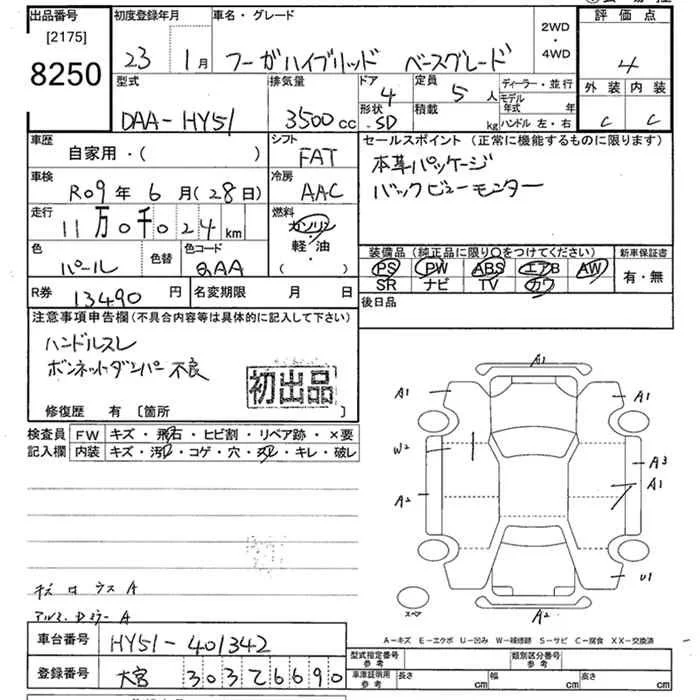 出品番号 初度登録年月 車名・グレード 2WD・4WD 評価点
[2175]
8250
23 1月 フーガハイブリッド ベースグレード 4
型式 排気量 ドア 定員 ディーラー・並行 外装 内装
DAA-HY51 3500cc 4 5人 モデル年式 年
形状 積載 ハンドル 左・右 C C
SD kg
車歴 シフト セールスポイント(正常に機能するものに限ります)
自家用・( ) FAT 本革パッケージ
車検 冷房 バックビューモンター
R09年6月(28日) AAC
走行 燃料
11万0千024km ガソリン・軽・油 ( )
色 色替 色コード 装備品(純正品に限り○をつけてください) 新車保証書
パール QAA PS PW ABS エアB AW 有・無
SR ナビ TV カワ
R券 13490円 名変期限 月 日 後日品
注意事項申告欄(不具合内容等は具体的に記入して下さい)
ハンドルスレ
ボンネットダンパー不良
初出品
修復歴 有 [箇所 ]
検査員 FW キズ・飛石・ヒビ割・リペア跡・×要
記入欄 内装 キズ・汚・コゲ・穴・スレ・キレ・破レ
A1
A1 A1
W2 A3
A1
A2
U1
スペア A2
A
A
A-キズ E-エクボ U-凹み W-補修跡 S-サビ C-腐食 XX-交換済
車台番号 HY51-401342
型式指定番号 参考 類別区分番号 参考
登録番号 大宮 303 て 6690
車庫証明用 参考 長さ cm 幅 cm 高さ cm